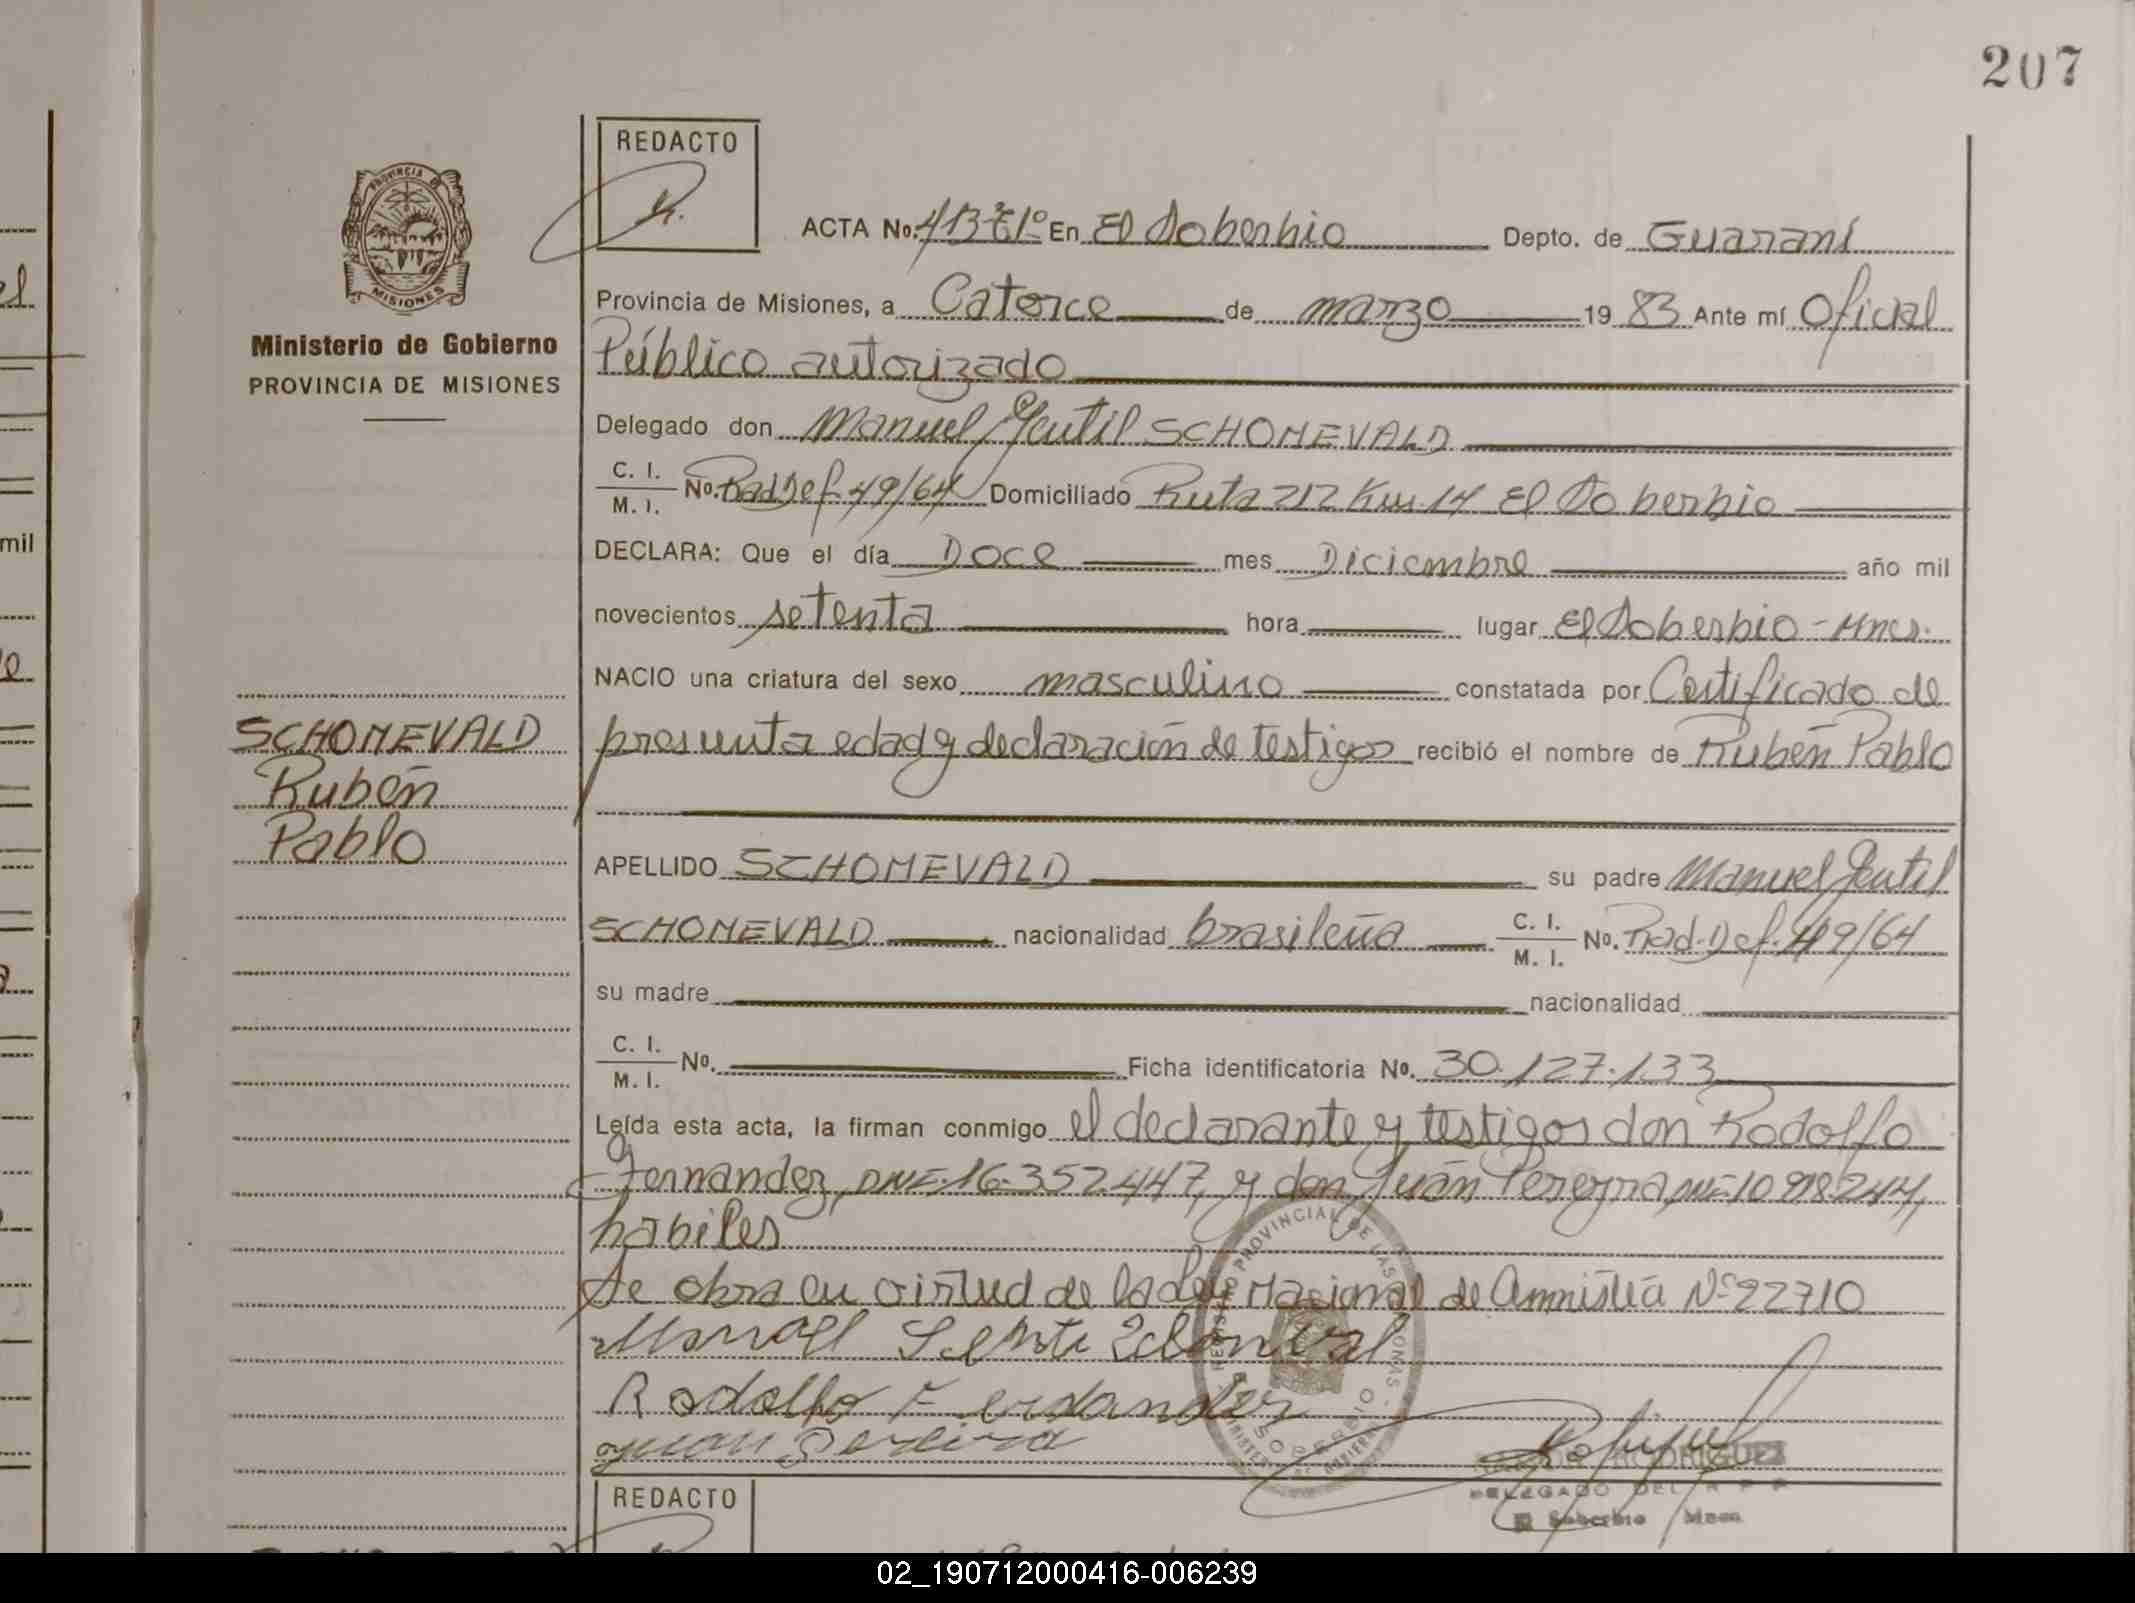 207
REDACTO
PROVINCIA DE
MISIONES
Ministerio de Gobierno
PROVINCIA DE MISIONES
ACTA No. 413 Tº 1º En El Soberbio Depto. de Guaraní
Provincia de Misiones, a Catorce de marzo 19 83 Ante mí Oficial
Público autorizado
Delegado don Manuel Gentil SCHONEVALD
C. I.
M. I. No. Rad Def. 49/64 Domiciliado Ruta 212 Km. 14 El Soberbio
DECLARA: Que el día Doce mes Diciembre año mil
novecientos setenta hora lugar El Soberbio - Mnes.
NACIO una criatura del sexo masculino constatada por Certificado de
presunta edad y declaración de testigos recibió el nombre de Rubén Pablo
SCHONEVALD
Rubén
Pablo
APELLIDO SCHONEVALD su padre Manuel Gentil
SCHONEVALD nacionalidad brasileña C. I. M. I. No. Rad. Def. 49/64
su madre nacionalidad
C. I.
M. I. No. Ficha identificatoria No. 30.127.133
Leída esta acta, la firman conmigo el declarante y testigos don Rodolfo
Fernandez, DNI: 16.352.447, y don Juán Pereyra, DNI: 10.918.244,
habiles
Se obra en virtud de la Ley Nacional de Amnistía Nº 22710
Rodolfo Fernandez
Juan Pereira
REGISTRO PROVINCIAL DE LAS PERSONAS
SOBERBIO
RODRIGUEZ
DELEGADO DEL R P P
El Soberbio Mnes.
REDACTO
mil
02_190712000416-006239